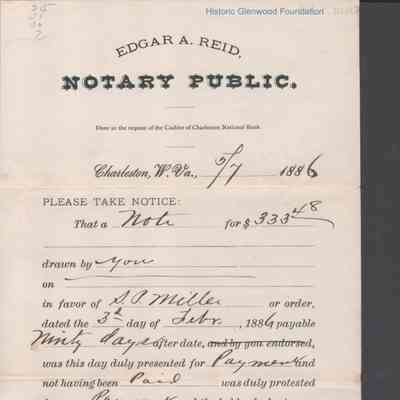 Historic Glenwood Foundation
EDGAR A. REID,
NOTARY PUBLIC.
Done at the request of the Cashier of Charleston National Bank
Charleston, W. Va., 5/7 1886
PLEASE TAKE NOTICE:
That a Note for $ 333 48
drawn by you
on
in favor of S. P. Miller or order,
dated the 3d day of Febr. , 1886 payable
Ninty days after date, and by you endorsed,
was this day duly presented for Payment and
not having been Paid was duly protested